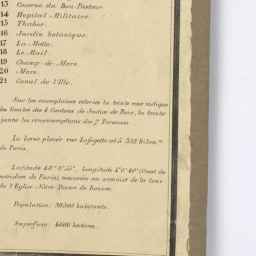 13 Caserne du Bon Pasteur.
14 Hôpital Militaire.
15 Thabor.
16 Jardin botanique.
17 La Motte.
18 Le Mail.
19 Champ de Mars.
20 Mars.
21 Canal de l'Ille.
Sur les exemplaires coloriés la teinte rose indique
les limites des 4 Cantons de Justice de Paix, la teinte
jaune les circonscriptions des
La borne placée rue Lafayette est à
de Paris.
Latitude Longitude (Ouest du
méridien de Paris), mesurée au sommet de la tour
de l'Eglise Notre-Dame de Rennes.
Population: habitants.
Superficie: hectares.